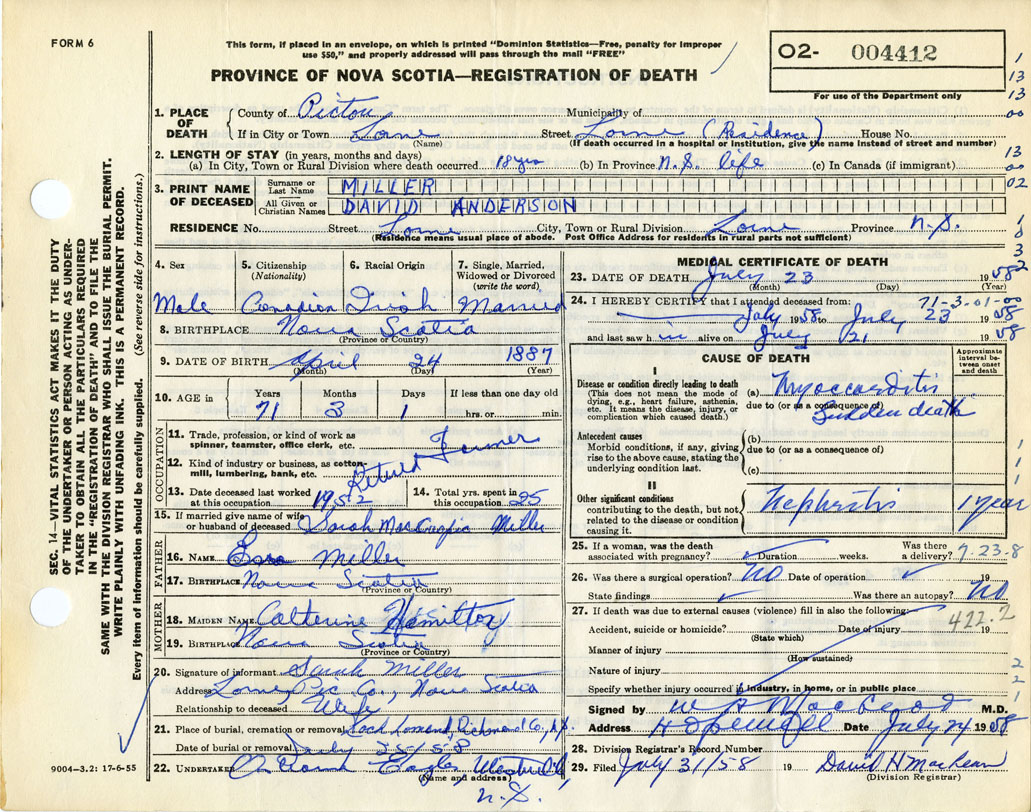 FORM 6
This form, if placed in an envelope, on which is printed "Dominion Statistics—Free, penalty for improper
use $50," and properly addressed will pass through the mail "FREE"
PROVINCE OF NOVA SCOTIA—REGISTRATION OF DEATH
O2- 004412
For use of the Department only
SEC. 14—VITAL STATISTICS ACT MAKES IT THE DUTY
OF THE UNDERTAKER OR PERSON ACTING AS UNDER-
TAKER TO OBTAIN ALL THE PARTICULARS REQUIRED
IN THE "REGISTRATION OF DEATH" AND TO FILE THE
SAME WITH THE DIVISION REGISTRAR WHO SHALL ISSUE THE BURIAL PERMIT.
WRITE PLAINLY WITH UNFADING INK. THIS IS A PERMANENT RECORD.
Every item of information should be carefully supplied. (See reverse side for instructions.)
1. PLACE OF DEATH
County of Pictou Municipality of
If in City or Town Lorne Street Lorne (Residence) House No.
(Name) (If death occurred in a hospital or institution, give the name instead of street and number)
2. LENGTH OF STAY (in years, months and days)
(a) In City, Town or Rural Division where death occurred 18 yrs (b) In Province N.S. life (c) In Canada (if immigrant)
3. PRINT NAME OF DECEASED
Surname or Last Name MILLER
All Given or Christian Names DAVID ANDERSON
RESIDENCE No. Street Lorne City, Town or Rural Division Lorne Province N.S.
(Residence means usual place of abode. Post Office Address for residents in rural parts not sufficient)
4. Sex 5. Citizenship (Nationality) 6. Racial Origin 7. Single, Married, Widowed or Divorced (write the word)
Male Canadian Irish Married
8. BIRTHPLACE Nova Scotia
(Province or Country)
9. DATE OF BIRTH April 24 1887
(Month) (Day) (Year)
10. AGE in Years Months Days If less than one day old
71 3 1 hrs. or min.
OCCUPATION
11. Trade, profession, or kind of work as
spinner, teamster, office clerk, etc. Farmer
12. Kind of industry or business, as cotton-
mill, lumbering, bank, etc. Retired
13. Date deceased last worked at this occupation 1952
14. Total yrs. spent in this occupation 25
15. If married give name of wife
or husband of deceased Sarah Miller
FATHER
16. NAME Miller
17. BIRTHPLACE Nova Scotia
(Province or Country)
MOTHER
18. MAIDEN NAME Catherine
19. BIRTHPLACE Nova Scotia
(Province or Country)
20. Signature of informant Sarah Miller
Address Lorne, Pic. Co., Nova Scotia
Relationship to deceased Wife
21. Place of burial, cremation or removal Loch Lomond, Richmond Co, N.S.
Date of burial or removal July 25-1958
22. UNDERTAKER Eagles Westville
(Name and address)
N.S.
9004-3.2: 17-6-55
MEDICAL CERTIFICATE OF DEATH
23. DATE OF DEATH July 23 1958
(Month) (Day) (Year)
24. I HEREBY CERTIFY that I attended deceased from: 71-3-01-00
July 1958 to July 23 1958
and last saw him alive on July 21 1958
CAUSE OF DEATH
Approximate interval between onset and death
I
Disease or condition directly leading to death
(This does not mean the mode of
dying, e.g., heart failure, asthenia,
etc. It means the disease, injury, or
complication which caused death.)
(a) Myoccarditis
due to (or as a consequence of) Sudden death
Antecedent causes
Morbid conditions, if any, giving
rise to the above cause, stating the
underlying condition last.
(b)
due to (or as a consequence of)
(c)
II
Other significant conditions
contributing to the death, but not
related to the disease or condition
causing it.
Nephritis 1 year
25. If a woman, was the death
associated with pregnancy? Duration weeks. Was there a delivery? 7.23-8
26. Was there a surgical operation? NO Date of operation 19
State findings Was there an autopsy? NO
27. If death was due to external causes (violence) fill in also the following:
422.2
Accident, suicide or homicide? Date of injury 19
(State which)
Manner of injury
(How sustained)
Nature of injury
Specify whether injury occurred in industry, in home, or in public place
Signed by M.D.
Address Hopewell Date July 24 1958
28. Division Registrar's Record Number
29. Filed July 31/58 19 David H MacLean
(Division Registrar)